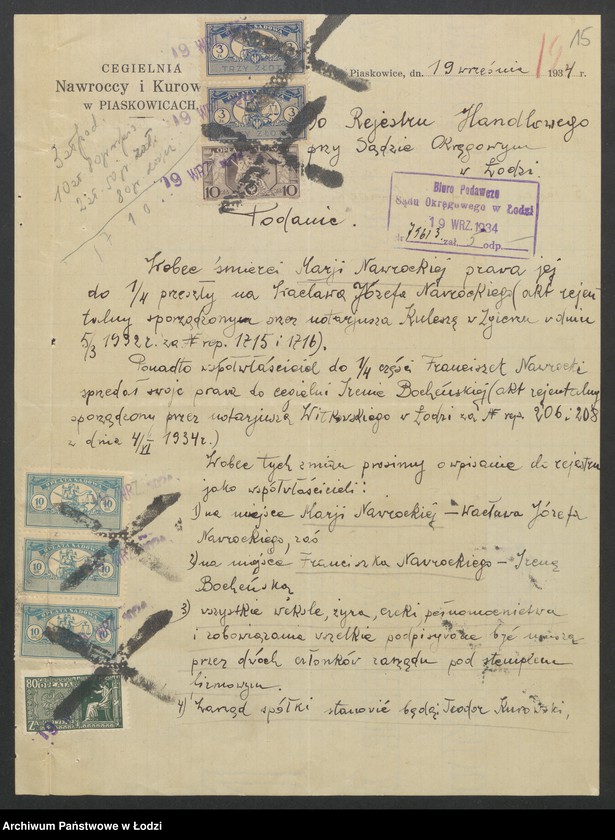 15
19
CEGIELNIA
Nawroccy i Kurow
W PIASKOWICACH
Piaskowice, dn. 19 września 1934 r.
3
3
TRZY ZŁOTE
3
3
10
10
19 WRZ
Do Rejestru Handlowego
przy Sądzie Okręgowym
w Łodzi.
Biuro Podawcze
Sądu Okręgowego w Łodzi
19 WRZ. 1934
zał. odp.
Podanie.
Wobec śmierci Marji Nawrockiej prawa jej
do 1/4 przeszły na Wacława Józefa Nawrockiego (akt rejen-
talny sporządzonym przez notarjusza Kuleszę w Zgierzu w dniu
5/3 1932 r. za № rep. 1715 i 1716).
Ponadto współwłaściciel do 1/4 części Franciszek Nawrocki
sprzedał swoje prawa do cegielni Irenie Bocheńskiej (akt rejentalny
sporządzony przez notarjusza Witkowskiego w Łodzi za № rep. 206 i 208
z dnia 4/VI 1934 r.)
Wobec tych zmian prosimy o wpisanie do rejestru
jako współwłaścicieli:
1) na miejsce Marji Nawrockiej – Wacława Józefa
Nawrockiego, zaś
2) na miejsce Franciszka Nawrockiego – Irenę
Bocheńską
3) wszystkie weksle, żyra, czeki, pełnomocnictwa
i zobowiązania wszelkie podpisywane być muszą
przez dwóch członków zarządu pod stemplem
firmowym.
4) Zarząd spółki stanowić będą: Teodor Kurowski,
10
10
10
10
10
10
80 GR
OPŁATA
19
Archiwum Państwowe w Łodzi